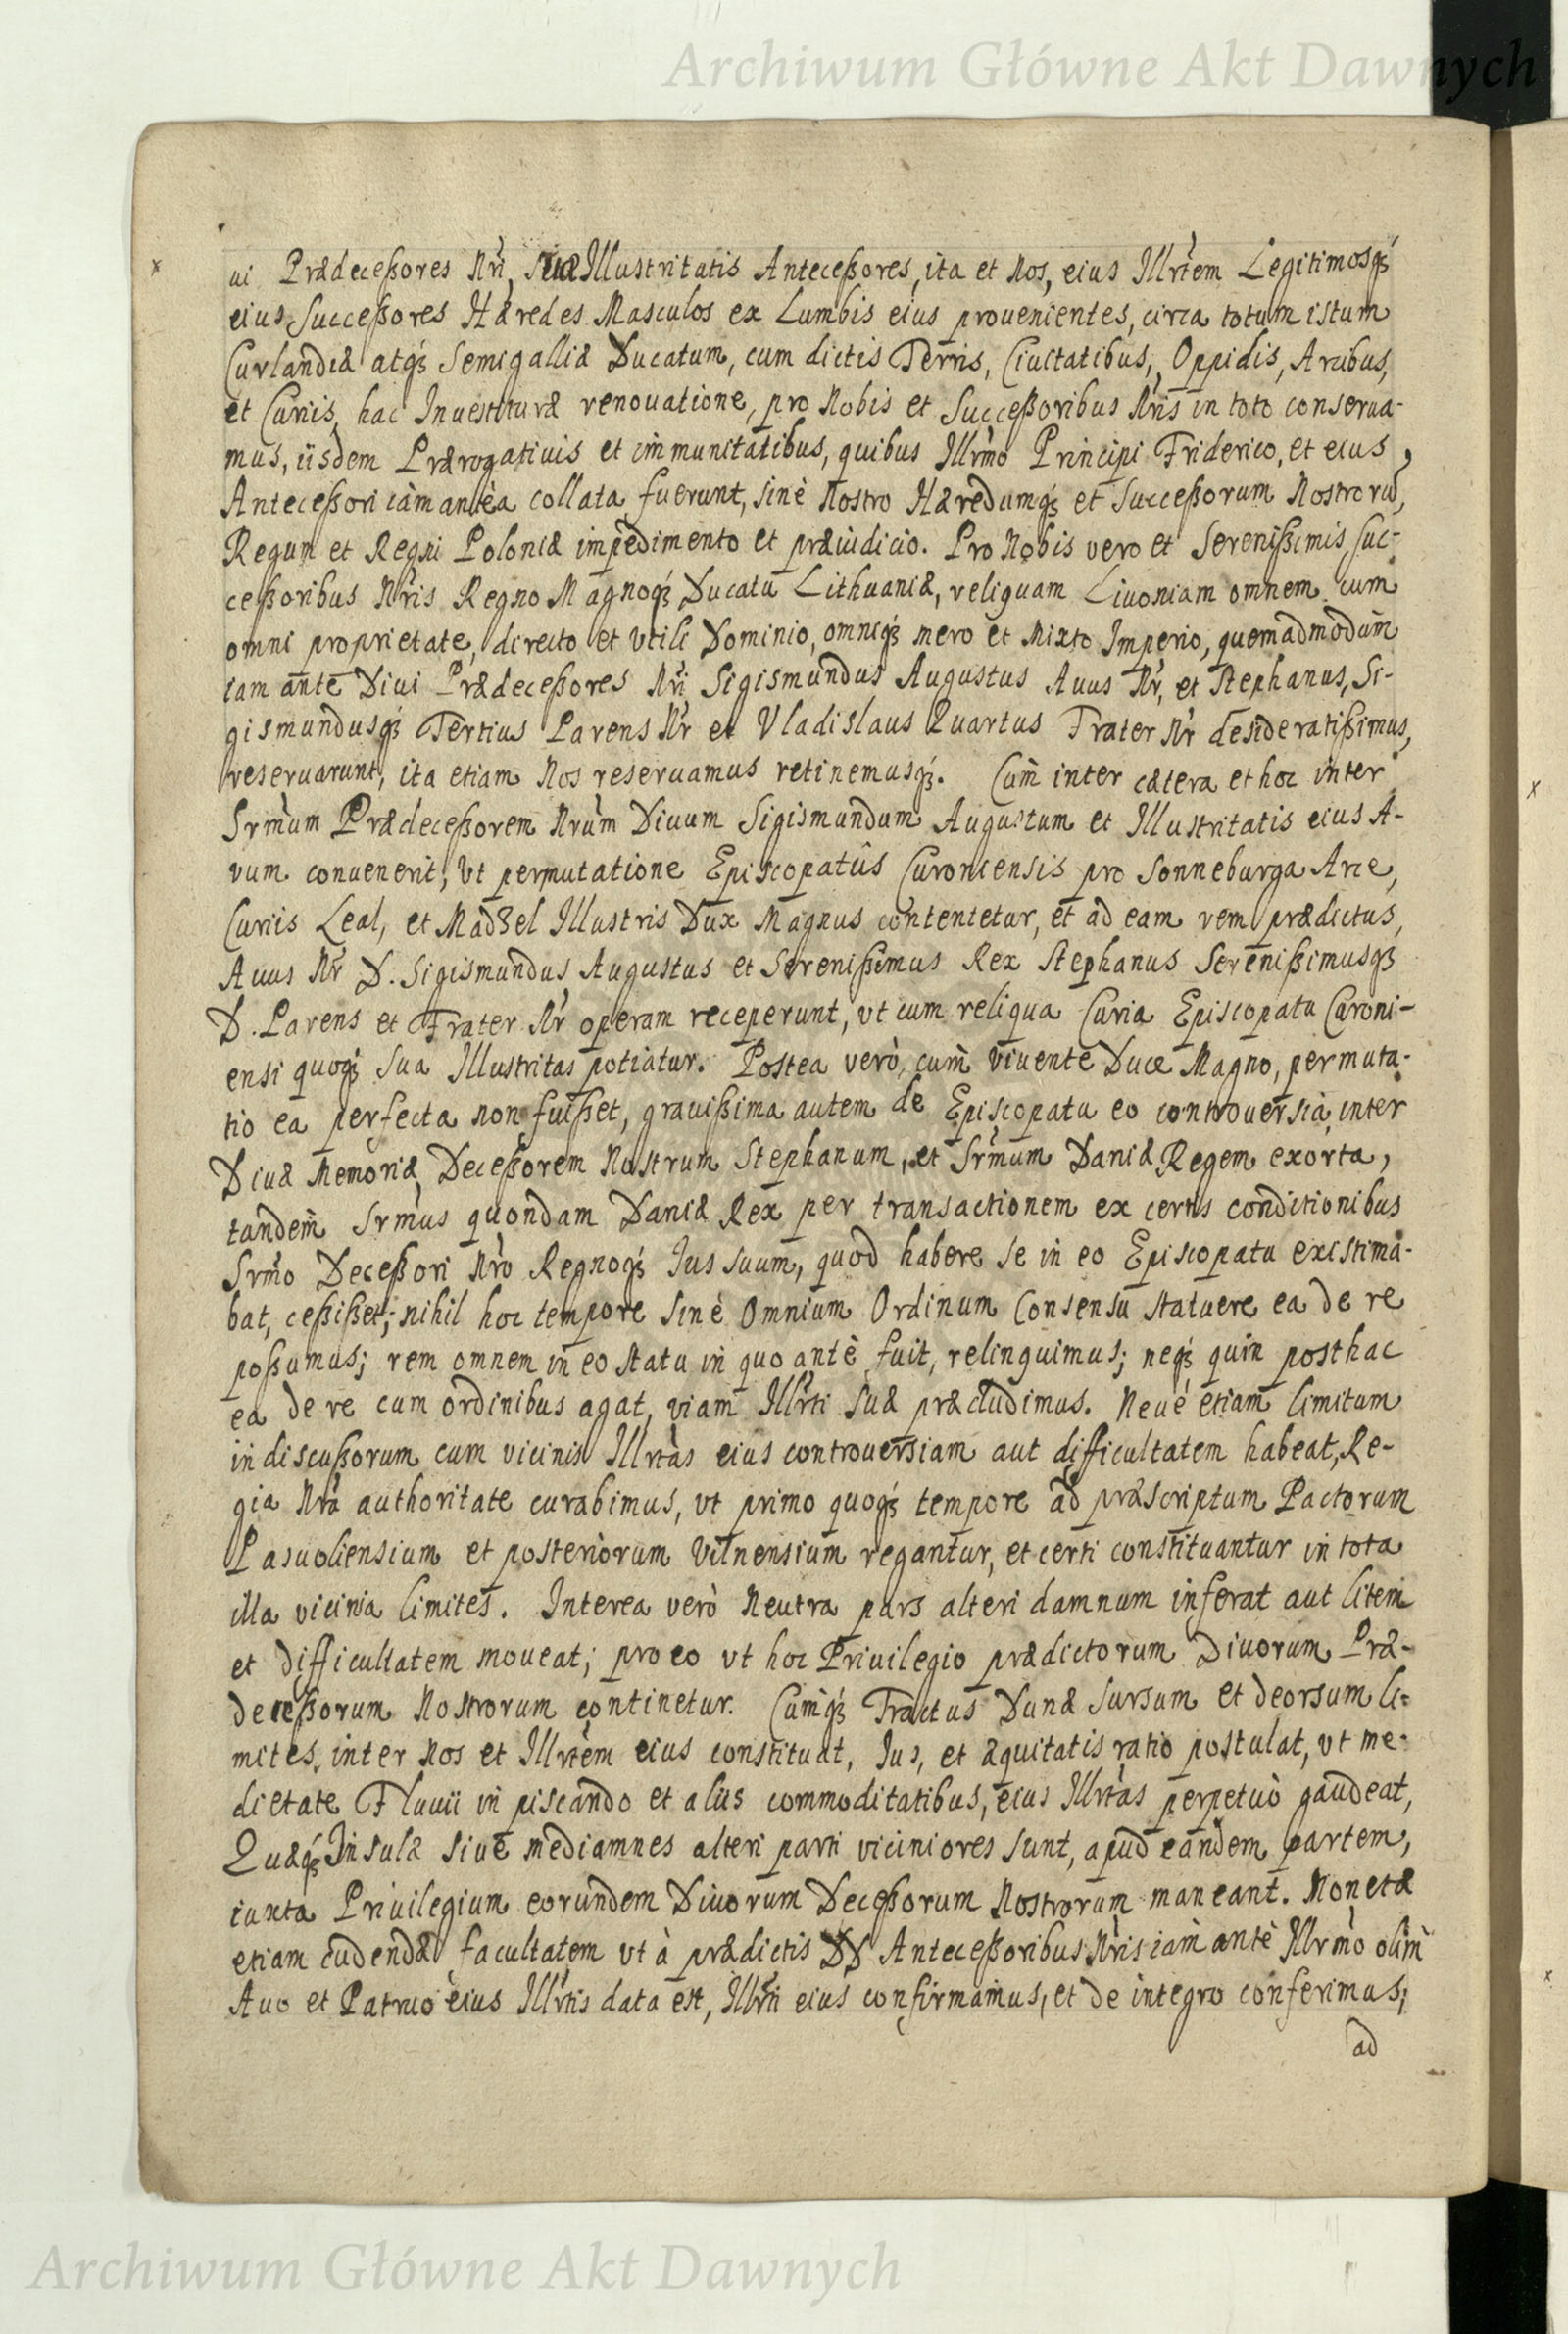 Archiwum Główne Akt Dawnych
ui Prædeceßores Nri, Suæ Illustritatis Anteceßores, ita et Nos, eius Illrtem Legitimosq3
eius Succeßores Hæredes Masculos ex Lumbis eius prouenientes, circa totum istum
Curlandiæ atq3 Semigalliæ Ducatum, cum dictis Terris, Ciuitatibus, Oppidis, Arcibus,
et Curiis, hac Inuestituræ renouatione, pro Nobis et Succeßoribus Nris in toto conserua-
mus, iisdem Prærogatiuis et immunitatibus, quibus Illrmo Principi Friderico, et eius
Anteceßori iàm anteà collata fuerunt, sinè Nostro Hæredumq3 et Succeßorum Nostrorũ,
Regum et Regni Poloniæ impedimento et præiudicio. Pro Nobis vero et Serenißimis Suc-
ceßoribus Nris Regno Magnoq3 Ducatu Lithuaniæ, reliquam Liuoniam omnem cum
omni proprietate, directo et Vtili Dominio, omniq3 mero et Mixto Imperio, quemadmodùm
iam ante Diui Prædeceßores Nri Sigismundus Augustus Auus Nr, et Stephanus, Si-
gismundusq3 Tertius Parens Nr et Vladislaus Quartus Frater Nr desideratißimus,
reseruarunt, ita etiam Nos reseruamus retinemusq3. Cùm inter cætera et hoc inter
Srmum Prædeceßorem Nrum Diuum Sigismundum Augustum et Illustritatis eius A-
vum conuenerit, Vt permutatione Episcopatûs Curoniensis pro Sonneburga Arce,
Curiis Leal, et Mad3el Illustris Dux Magnus contentetur, et ad eam rem prædictus,
Auus Nr D. Sigismundus Augustus et Serenißimus Rex Stephanus Serenißimusq3
D. Parens et Frater Nr operam receperunt, vt cum reliqua Curia Episcopatu Curoni-
ensi quoq3 Sua Illustritas potiatur. Postea verò, cùm viuente Duce Magno, permuta-
tio ea perfecta non fuißet, grauißima autem de Episcopatu eo controuersia, inter
Diuæ Memoriæ Deceßorem Nostrum Stephanum, et Srmum Daniæ Regem exorta,
tandem Srmus quondam Daniæ Rex per transactionem ex certis conditionibus
Srmo Deceßori Nro Regnoq3 Ius suum, quod habere se in eo Episcopatu existima-
bat, ceßißet; nihil hoc tempore sinè Omnium Ordinum Consensu statuere ea de re
poßumus; rem omnem in eo statu in quo antè fuit, relinquimus; neq3 quin posthac
ea de re cum ordinibus agat, viam Illrti Suæ præcludimus. Neuè etiam limitum
indiscußorum cum vicinis Illrtas eius controuersiam aut difficultatem habeat, Re-
gia Nra authoritate curabimus, vt primo quoq3 tempore ad præscriptum Pactorum
Pasuoliensium et posteriorum Vilnensium regantur, et certi constituantur in tota
illa vicinia limites. Interea verò Neutra pars alteri damnum inferat aut litem
et difficultatem moueat; pro eo vt hoc Priuilegio prædictorum Diuorum Præ-
deceßorum Nostrorum continetur. Cùmq3 Tractus Dunæ Sursum et deorsum li-
mites inter Nos et Illrtem eius constituat, Ius, et æquitatis ratio postulat, vt me-
dietate Fluuii in piscando et aliis commoditatibus, eius Illrtas perpetuò gaudeat,
Quæq3 Insulæ siue mediamnes alteri parti viciniores sunt, apud eandem partem,
iuxta Priuilegium eorundem Diuorum Deceßorum Nostrorum maneant. Monetæ
etiam cudendæ facultatem vt à prædictis DD Anteceßoribus Nris iàm antè Illrmo olim
Auo et Patruo eius Illrtis data est, Illrti eius confirmamus, et de integro conferimus;
ad
Archiwum Główne Akt Dawnych